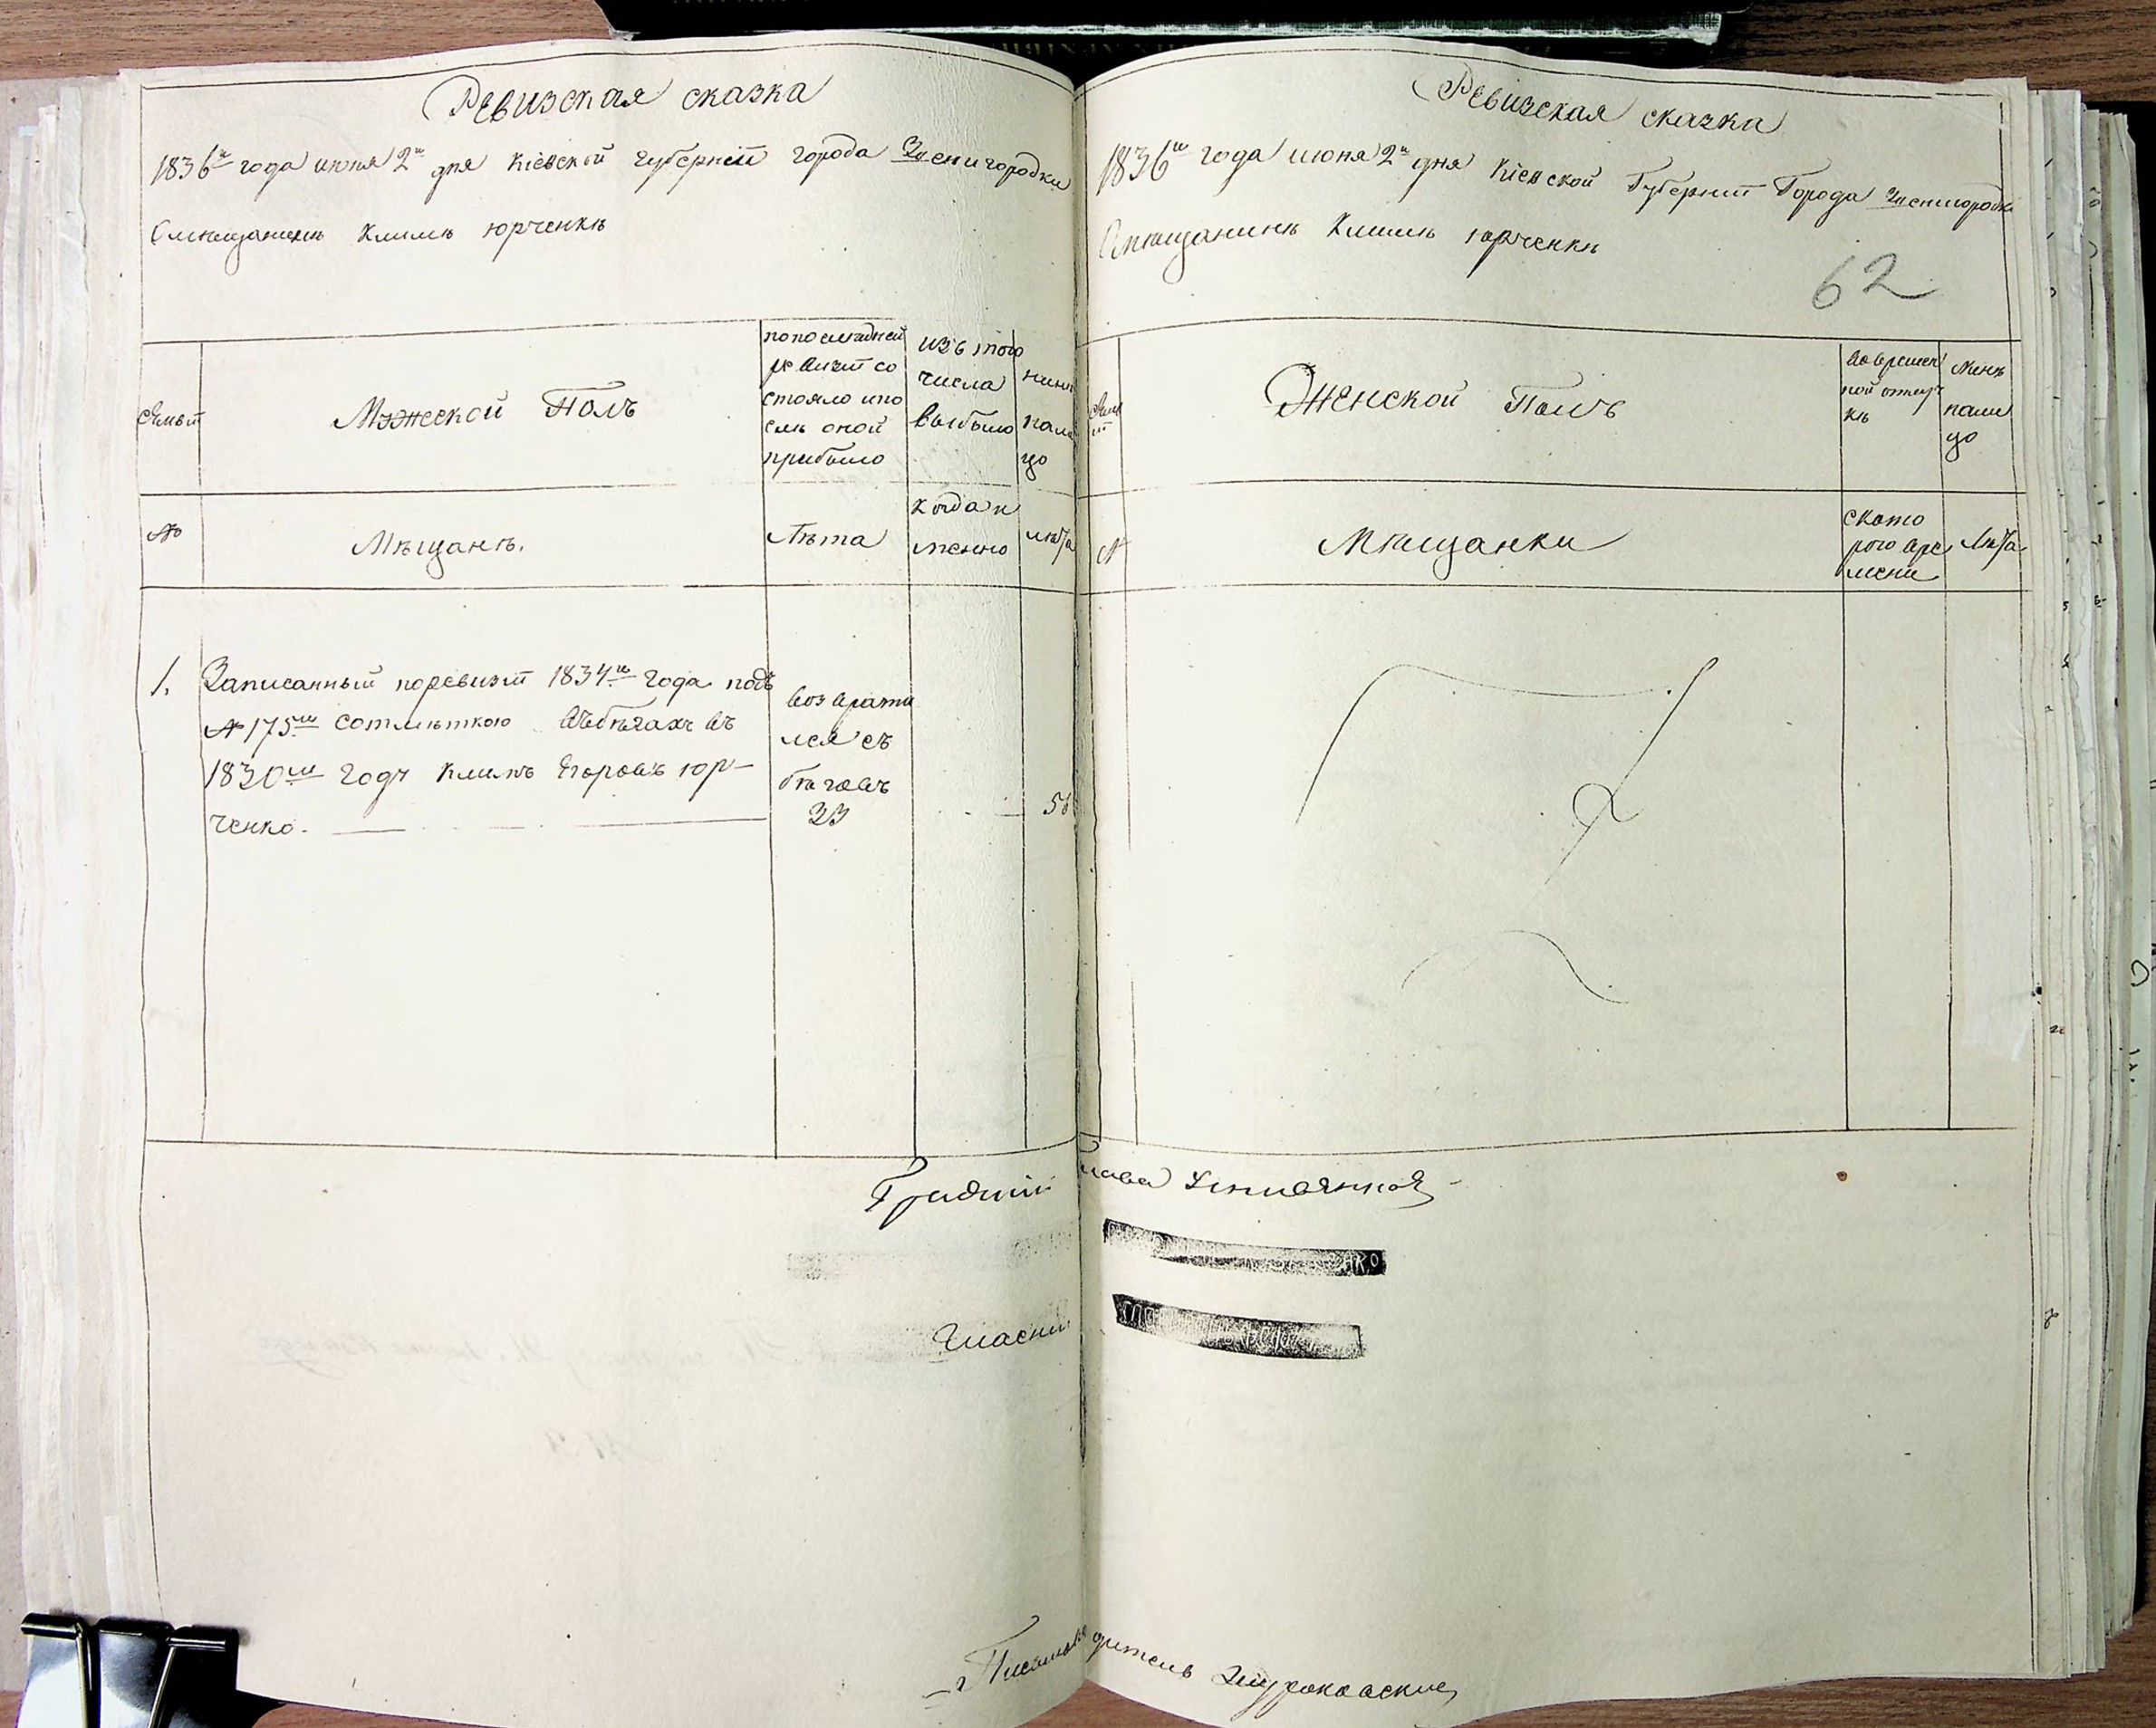 Ревизская сказка
1836го года июня 2го дня Кіевской губерніи города Звенигородки
О мещанинѣ Климѣ Юрченкѣ
Семьи
Мужеской Полъ
по последней
ревизіи со
стояло и по
слѣ оной
прибыло
изъ того
числа
выбыло
нынѣ
нали
цо
№
Мѣщанъ.
Лѣта
когда и
менно
лѣта
1.
Записанный по ревизіи 1834го года подъ
№ 175ш сотмѣткою въ бѣгахъ въ
1830ш годѣ Климъ Егоровъ Юр-
ченко.
возврати
лся съ
бѣговъ
23
Ревизская сказка
1836го года июня 2го дня Кіевской Губерніи Города Звенигородки
О мѣщанинѣ Климѣ Юрченкѣ
62
Семьи
Женской Полъ
во времен
ной отлуч
кѣ
нынѣ
нали
цо
№
Мѣщанки
с кото
рого вре
мени
Лѣта
Градскій Глава
Гласный
Писмоводитель